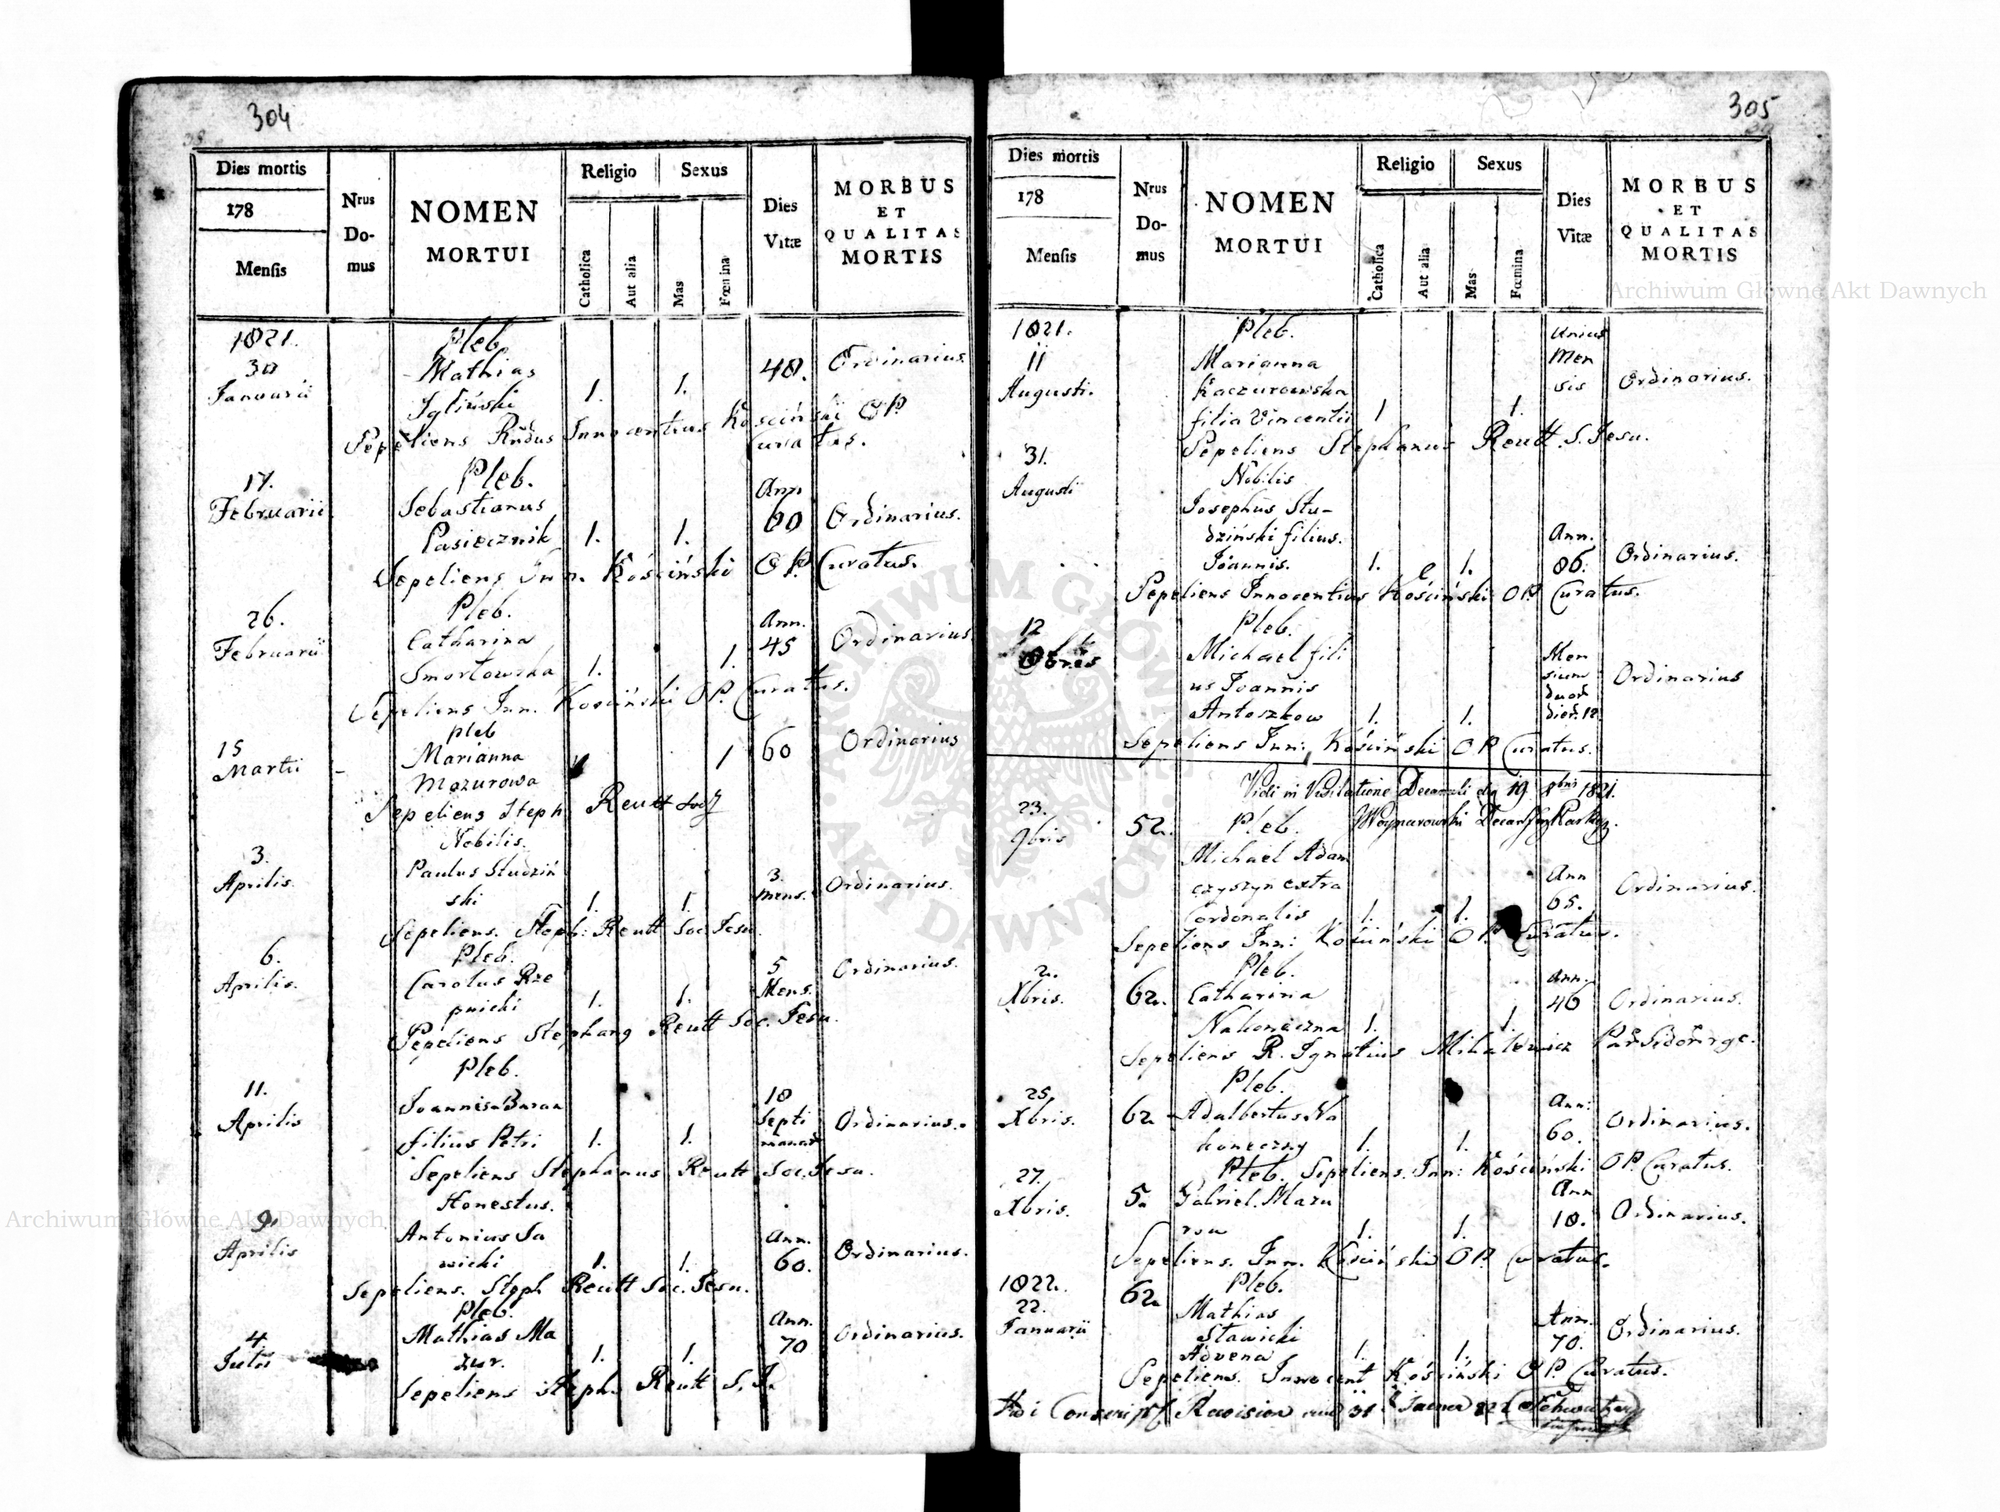 304
Dies mortis
178
Mensis
Nrus
Do-
mus
NOMEN
MORTUI
Religio
Sexus
Catholica
Aut alia
Mas
Fœmina
Dies
Vitæ
MORBUS
ET
QUALITAS
MORTIS
1821.
30
Januarii
Pleb.
Mathias
Igliński
1.
1.
48.
Ordinarius
Sepeliens Rndus Innocentius Kościński OP.
Curatus.
17.
Februarii
Pleb.
Sebastianus
Pasiecznik
1.
1.
Ann
60
Ordinarius.
Sepeliens Inn. Kościński OP. Curatus.
26.
Februarii
Pleb.
Catharina
Smortowska
1.
1.
Ann.
45
Ordinarius
Sepeliens Inn. Kościński OP. Curatus.
15
Martii
Pleb
Marianna
Mazurowa
1
60
Ordinarius
Sepeliens Steph Reutt Soc J
3.
Aprilis
Nobilis.
Paulus Studziń
ski
1.
1.
3.
mens.
Ordinarius.
Sepeliens. Steph: Reutt Soc. Jesu.
6.
Aprilis.
Pleb.
Carolus Rze
pnicki
1.
1.
5
Mens.
Ordinarius.
Sepeliens Stephang Reutt Soc. Jesu.
11.
Aprilis
Pleb.
Joannis Buraa
filius Petri
1.
1.
18
Septi
manar
Ordinarius.
Sepeliens Stephanus Reutt Soc. Jesu.
9.
Aprilis
Honestus.
Antonius Sa
wicki
1.
1.
Ann.
60.
Ordinarius.
Sepeliens. Steph Reutt Soc. Jesu.
4.
Julii
Pleb.
Mathias Ma
zur.
1.
1.
Ann.
70
Ordinarius.
Sepeliens Steph. Reutt S. J.
305
Dies mortis
178
Mensis
Nrus
Do-
mus
NOMEN
MORTUI
Religio
Sexus
Catholica
Aut alia
Mas
Fœmina
Dies
Vitæ
MORBUS
ET
QUALITAS
MORTIS
1821.
11
Augusti.
Pleb.
Marianna
Kaczurowska
filia Vincentii
1
1.
Unius
Men
sis
Ordinarius.
Sepeliens Stephanus Reutt. S. Jesu.
31.
Augusti
Nobilis
Josephus Stu-
dziński filius.
Joannis.
1.
1.
Ann.
86.
Ordinarius.
Sepeliens Innocentius Kościński OP Curatus.
12
8bres
Pleb.
Michael fili
us Joannis
Antoszkow
1.
1.
Men
sium
duor
dier. 12.
Ordinarius
Sepeliens Inn: Kościński OP Curatus.
Vidi in Visitatione Decanali die 19 8bris 1821.
23.
9bris
52.
Pleb.
Michael Adam
czyszyn extra
Cordonalis
1.
1.
Ann
65.
Ordinarius.
Sepeliens Inn: Kościński OP Curatus.
2.
Xbris.
62.
Pleb.
Catharina
Nakoneczna
1.
1.
Ann.
46
Ordinarius.
Sepeliens R. Ignatius Mihalewicz
25.
Xbris.
62
Pleb.
Adalbertus Na
koneczny
1.
1.
Ann:
60.
Ordinarius.
Sepeliens. Inn: Kościński OP. Curatus.
27.
Xbris.
5.
Pleb.
Gabriel. Mazu
row
1.
1.
Ann
18.
Ordinarius.
Sepeliens. Inn. Kościński OP Curatus.
1822.
22.
Januarii
62
Pleb.
Mathias
Stawicki
Advena
1.
1.
Ann.
70.
Ordinarius.
Sepeliens. Innocent Kościński OP. Curatus.
Archiwum Główne Akt Dawnych
Archiwum Główne Akt Dawnych
ARCHIWUM GŁÓWNE AKT DAWNYCH